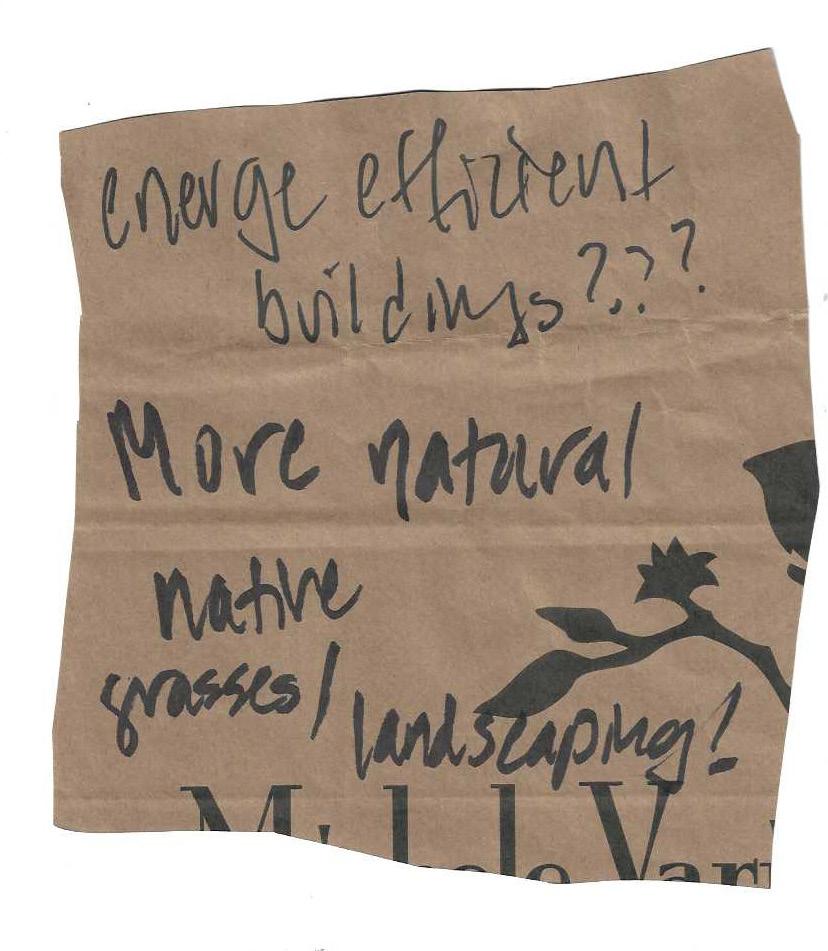 energe effizient
buildings???
More natural
native
grasses/
landscaping!
Michele Var